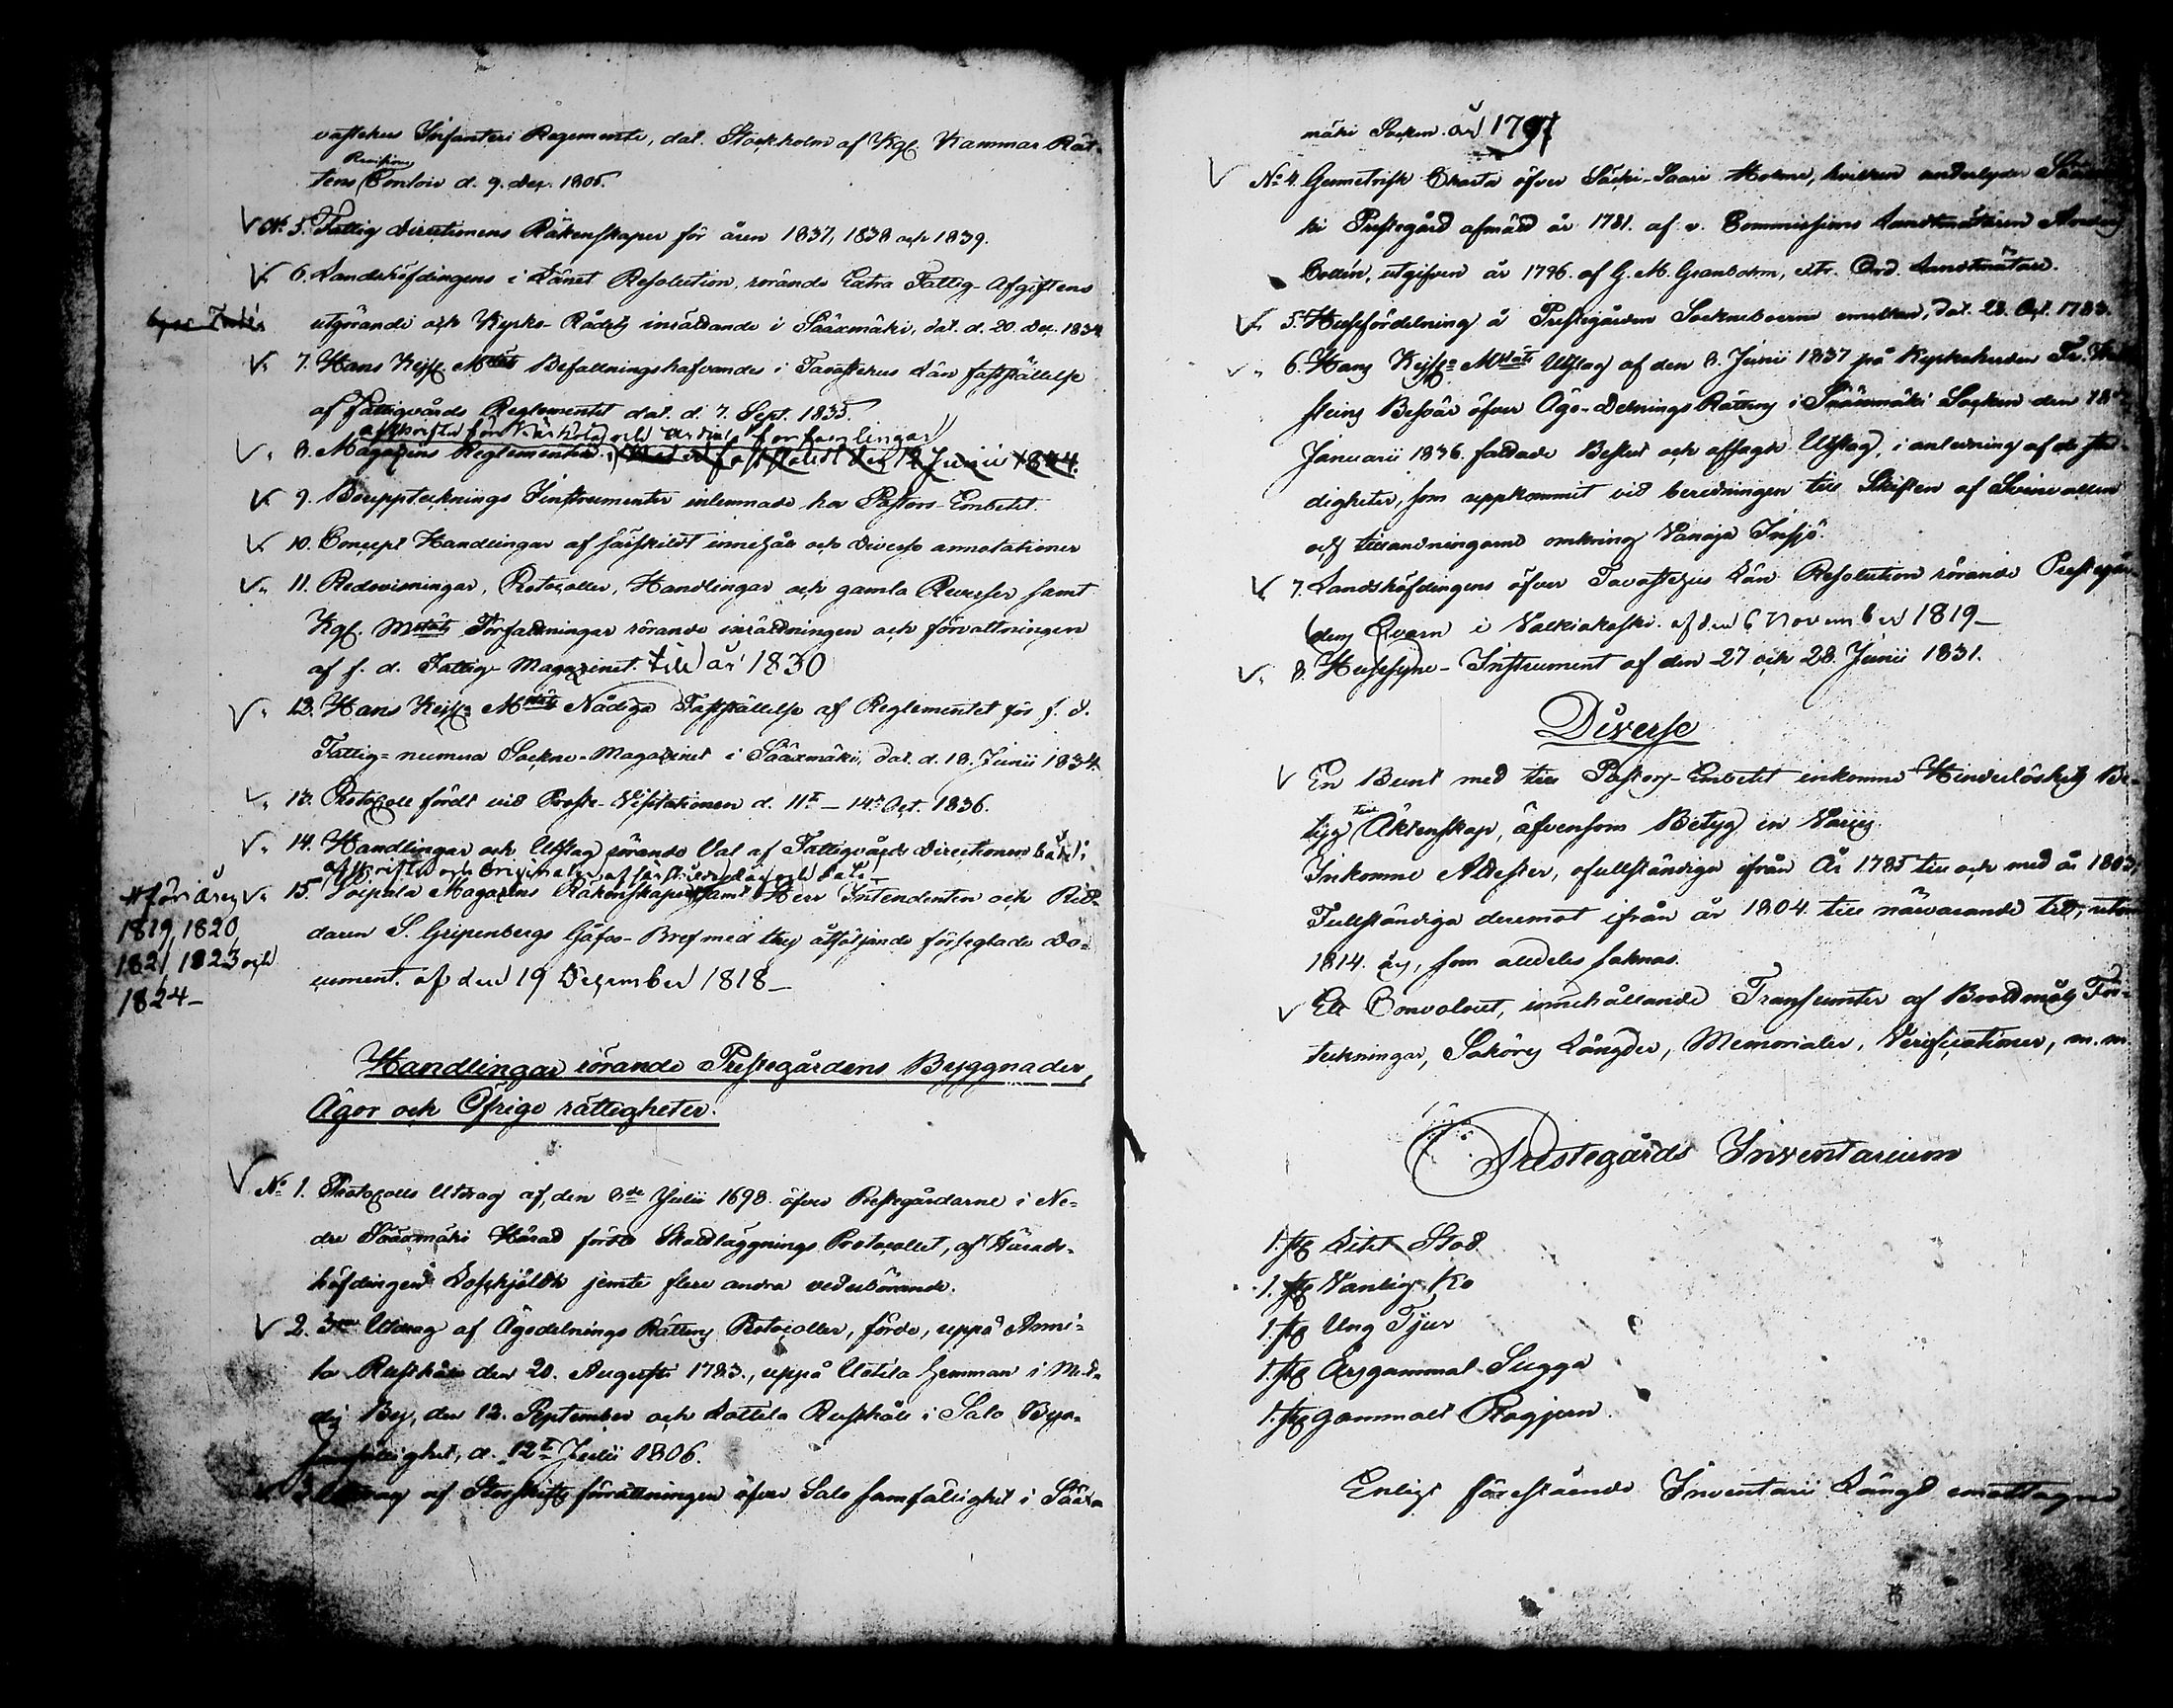 vastehus Infanteri Regemente, dat. Stockholm af Kgl. Kammar Rät-
Revisions
tens Contoir d. 9. Dec. 1805.
No 5. Fattig Directionens Räkenskaper för åren 1837, 1838 och 1839.
6. Landshöfdingens i Länet Resolution, rörande Extra Fattig-Afgiftens
utgörande och Kyrko-Rådets insättande i Sääxmäki, dat. d. 20. Dec. 1834
7. Hans Kejs. Mts Befallningshafvandes i Tavastehus Län fastställelse
af Fattigvårds Reglementet dat. d. 7. Sept. 1835.
afskrifter för
8. Magazins Reglementer
9. Boupptecknings Instrumenter inlemnade hos Pastors-Embetet.
10. Concept Handlingar af särskildt innehåll och diverse annotationer
11. Redovisningar, Protocoller, Handlingar och gamla Reverser samt
Kgl. Mts Författningar rörande inrättningen och förvaltningen
af f. d. Fattig Magazinet. till år 1830
12. Hans Kejs. Mts Nådiga Fastställelse af Reglementet för f. d.
Fattig- numera Sockne-Magazinet i Sääxmäki, dat. d. 18. Junii 1834.
13. Protocoll fördt vid Prosts-Visitationen d. 11t – 14t Oct. 1836.
14. Handlingar och Utslag rörande Val af Fattigvårds Directionen både i
afskrifter och originaler af särskildt
# för åren
15. Voipala Magazins Räkenskaper # samt Herr Intendenten och Rid-
1819, 1820
daren S. Gripenbergs Gåfvo-Bref med thy åtföljande förseglade Do-
1821, 1823 och
cument. af den 19 December 1818 –
1824 –
Handlingar rörande Prestegårdens Byggnader,
Ägor och Öfrige rättigheter.
No 1. Protocolls Utdrag af, den 8de Julii 1698. öfver Prestegårdarne i Ne-
dre Sääxmäki Härad förde Skattläggnings Protocollet, af Härads-
höfdingen jemte flere andra vederbörande.
2. 3ne Utdrag af Ägodelnings Rättens Protocoller, förde, uppå Anni-
la Rusthåll den 20. Augusti 1783., uppå Uotila Hemman i
By, den 12. September och Lottila Rusthåll i Salo Bya-
samfällighet, d. 12t Julii 1806.
3. Utdrag af Storskifts förrättningen öfver Salo samfällighet i Sääx-
mäki Socken. år 1797
No 4. Geometrisk Charta öfver Säcki-Saari Holme, hvilken underlyder Sääxmä-
ki Prestegård afmätt år 1781. af v. Commissions Landtmätaren
Collin, utgifven år 1796. af G. M. Granholm, extr. Ord. Landtmätare.
5. Husfördelning å Prestegården Sockneboerne emellan, dat. 28. Oct. 1783.
6. Hans Kejs. Mts Utslag af den 8. Junii 1837 på Kyrkoherden Fr.
steins Besvär öfver Ägo-Delnings Rättens i Sääxmäki Socken den 18
Januarii 1836. fattade Beslut och afsagde Utslag, i anledning af de stri-
digheter, som uppkommit vid beredningen till Skiften af
och tillandningarne omkring Vanaja Insjö.
7. Landshöfdingens öfver Tavastehus Län Resolution rörande Prestegår-
dens Qvarn i Valkiakoski. af den 6 November 1819 –
8. Hussyne-Instrument af den 27 och 28. Junii 1831.
Diverse
En Bunt med till Pastors-Embetet inkomne Hinderlöshets Be-
till
tyg Äktenskap, äfvensom Betyg in Varies.
Inkomne Attester, ofullständiga ifrån År 1785 till och med år 1803;
Fullständiga deremot ifrån år 1804. till närvarande tid, utom
1814. års, som alldeles saknas.
Ett Convolut, innehållande Transsumter af Brottmåls För-
teckningar, Saköres Längder, Memorialer, Verificationer, m. m.
Prestegårds Inventarium
1. st. Litet Stod
1. st. Vanlig Ko
1. st. Ung Tjur
1. st. Årsgammal Sugga
1. st. gammalt Rogjern.
Enligt förestående Inventarii Längd emottagne